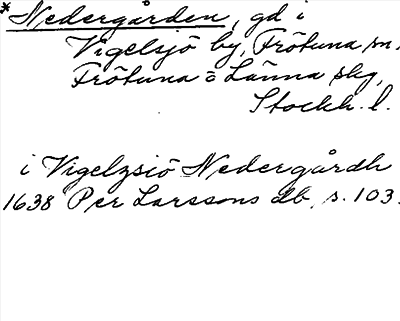 *Nedergården, gd i
Vigelsjö by, Frötuna sn.
Frötuna o Länna skg,
Stockh. l.
i Vigelzsiö Nedergårdh
1638 Per Larssons db, s. 103.